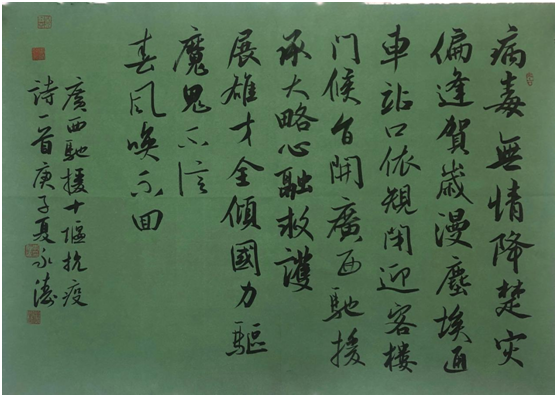 病毒無情降楚灾
偏逢賀歲漫塵埃通
車站口依規閉迎客樓
門候旨開廣西馳援
承大略心融救護
展雄才全傾國力驅
魔鬼不信
春風喚不回
廣西馳援十堰抗疫
詩一首庚子夏永濤